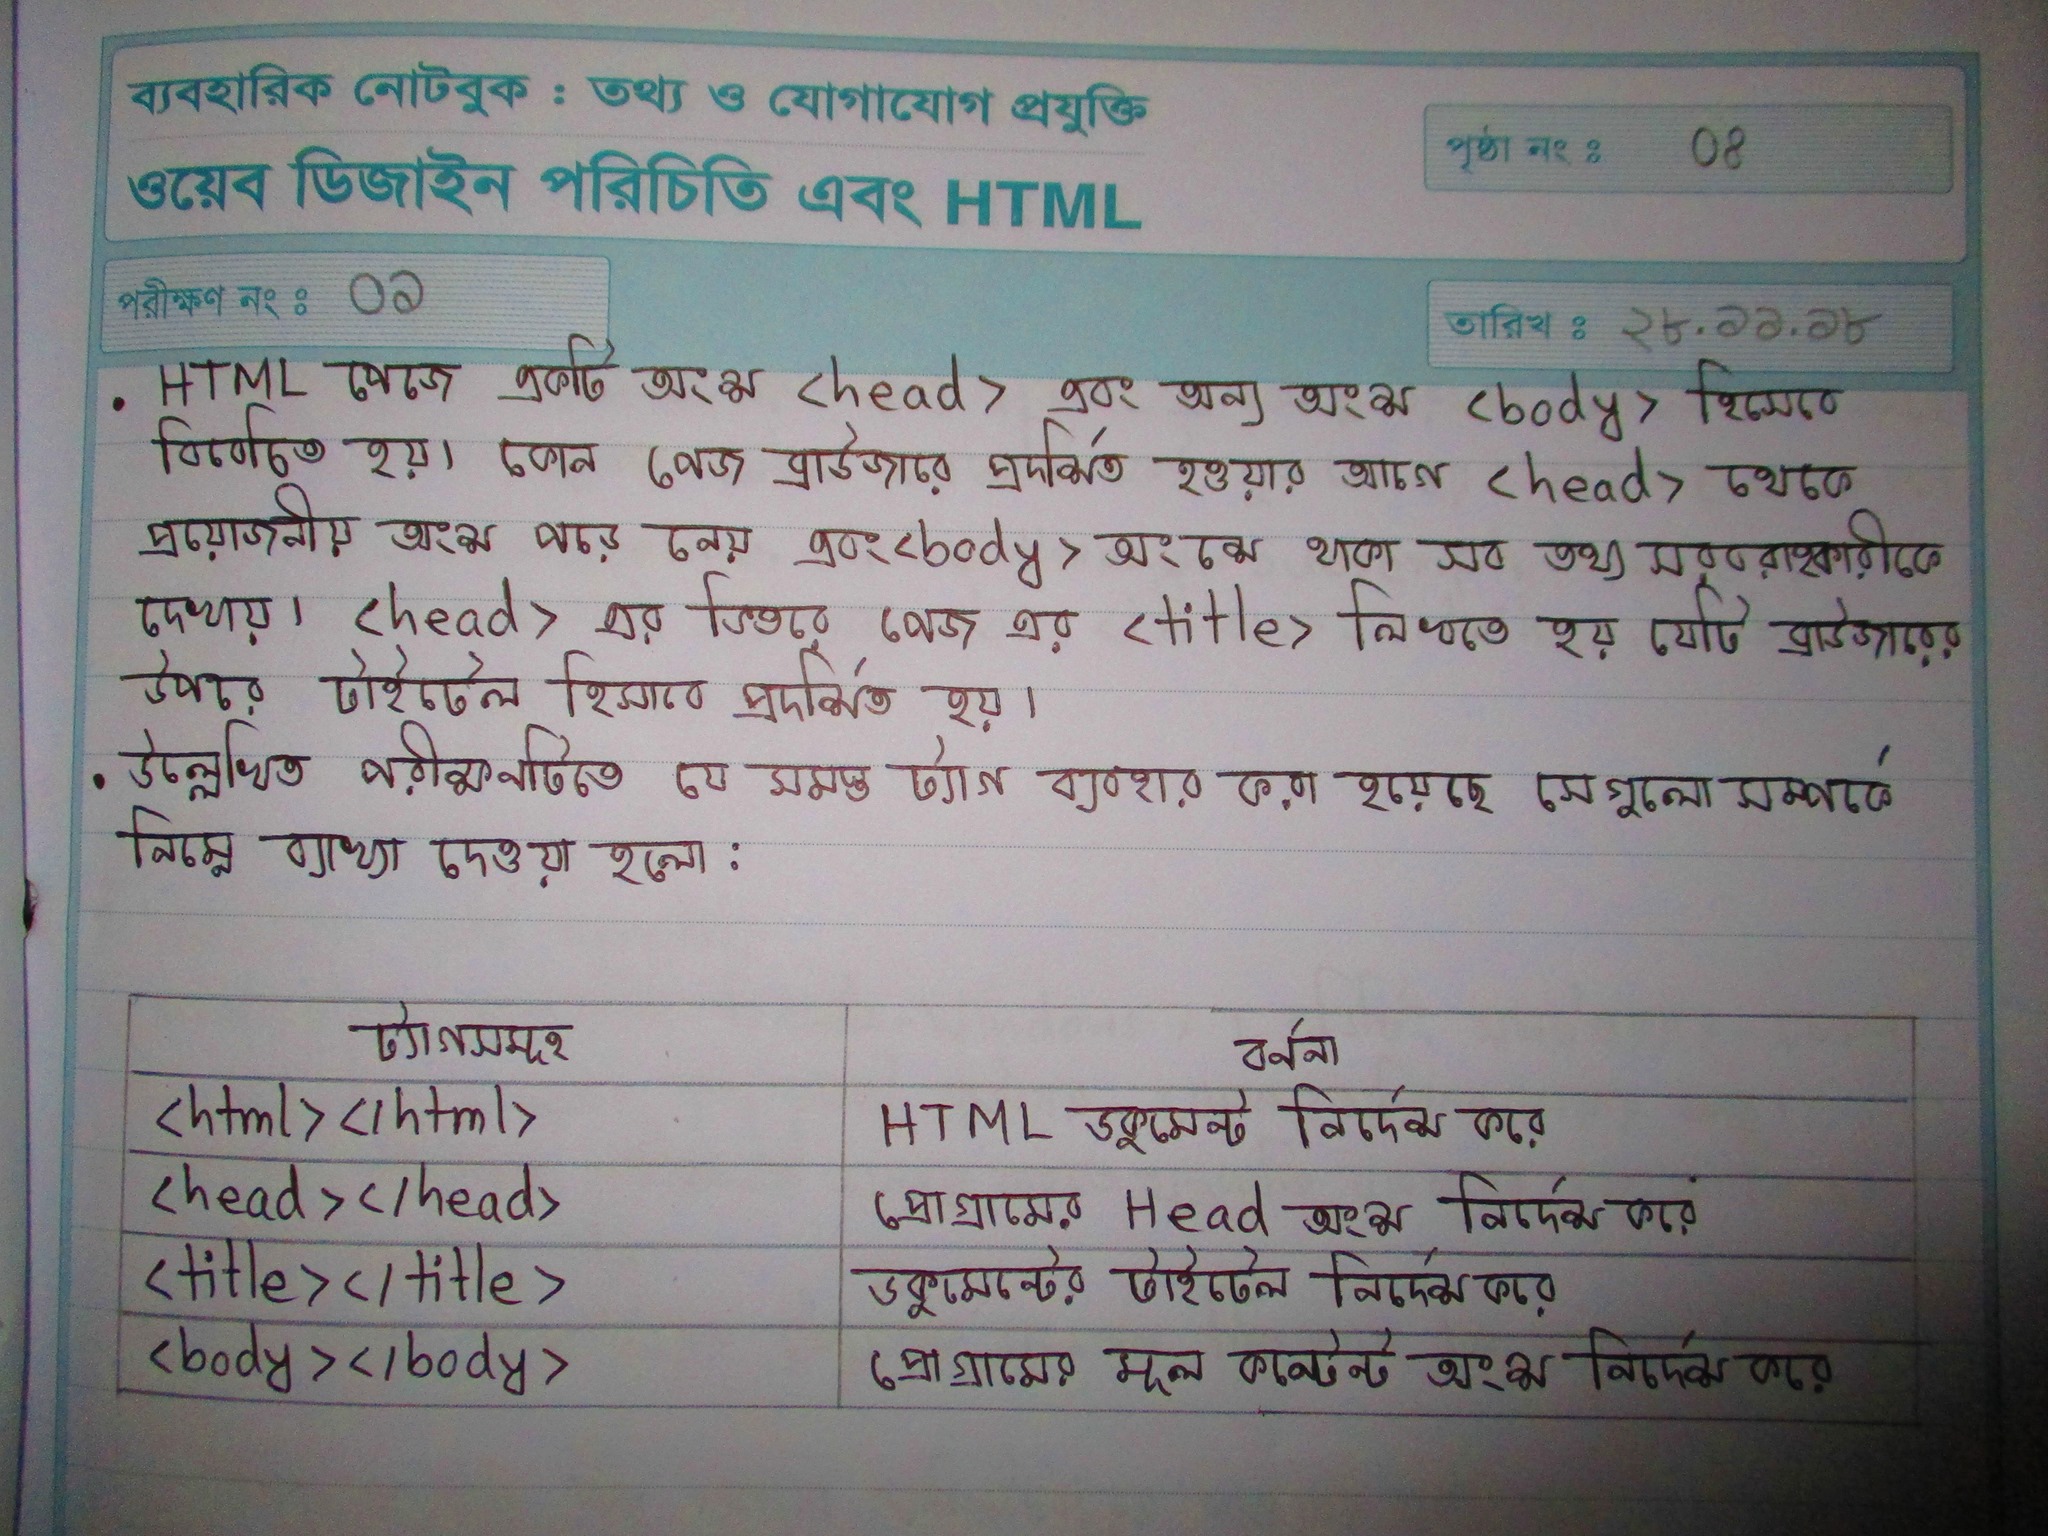 ব্যবহারিক নোটবুক : তথ্য ও যোগাযোগ প্রযুক্তি
ওয়েব ডিজাইন পরিচিতি এবং HTML
পৃষ্ঠা নং : ০৪
পরীক্ষণ নং : ০১
তারিখ : ২৮.১১.১৮
• HTML পেজে একটি অংশ <head> এবং অন্য অংশ <body> হিসেবে
বিবেচিত হয়। কোন পেজ ব্রাউজারে প্রদর্শিত হওয়ার আগে <head> থেকে
প্রয়োজনীয় অংশ পড়ে নেয় এবং <body> অংশে থাকা সব তথ্য সরবরাহকারীকে
দেখায়। <head> এর ভিতরে পেজ এর <title> লিখতে হয় যেটি ব্রাউজারের
উপরে টাইটেল হিসাবে প্রদর্শিত হয়।
• উল্লেখিত পরীক্ষনটিতে যে সমস্ত ট্যাগ ব্যবহার করা হয়েছে সেগুলো সম্পর্কে
নিম্নে ব্যাখ্যা দেওয়া হলো :
ট্যাগসমূহ বর্ননা
<html></html> HTML ডকুমেন্ট নির্দেশ করে
<head></head> প্রোগ্রামের Head অংশ নির্দেশ করে
<title></title> ডকুমেন্টের টাইটেল নির্দেশ করে
<body></body> প্রোগ্রামের মূল কন্টেন্ট অংশ নির্দেশ করে